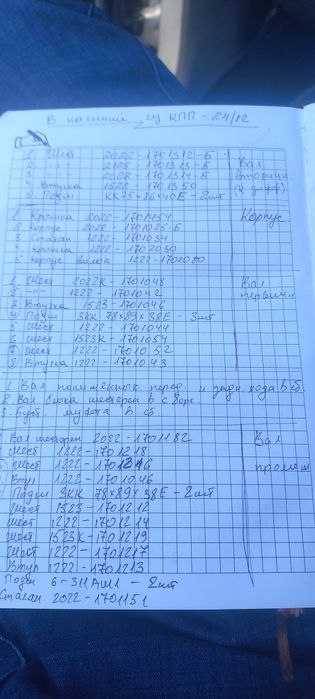 В наличии из КПП - 24/12
1 Шест 2022 - 1701312-Б Вал
2 -"- 2125 - 1701313-Б вторичн
3 -"- 2022 - 1701314-Б
4 Втулка 1522 - 1701350
5 Подш КК75×26×40Е - 2шт
1 Крышка 2022 - 1701454 Корпус
2 Корпус 2022 - 1701025-Б
3 Стакан 1222 - 1701034
4 крышка 1222 - 1702030
5 корпус вилок 1222-1702080
1 Шест 2022К - 1701048 Вал
2 -"- 1222 - 1701042 первичн
3 Втулка 1523 - 1701046
4 Подш 3КК 78×89×38Е - 3шт
5 Шест 1222 - 1701044
6 Шест 1523К - 1701054
7 Шест 1222 - 1701052
8 Втулка 1222 - 1701043
1 Вал пониженных перед. и задн. хода в сб.
2 Вал блока шестерен в сборе.
3. муфта в сб.
Вал шестерен 2022 - 1701182 Вал
Шест 1222 - 1701218 промеж
Шест 1222 - 1701346
Втул 1222 - 1701046
Подш 3КК 78×89×38Е - 2шт
Шест 1523 - 1701212
шест 1222 - 1701214
Шест 1523К - 1701219
Шест 1222 - 1701217
Втул 1222 - 1701213
Подш 6-311АШ1 - 2шт
Стакан 2022 - 1701151